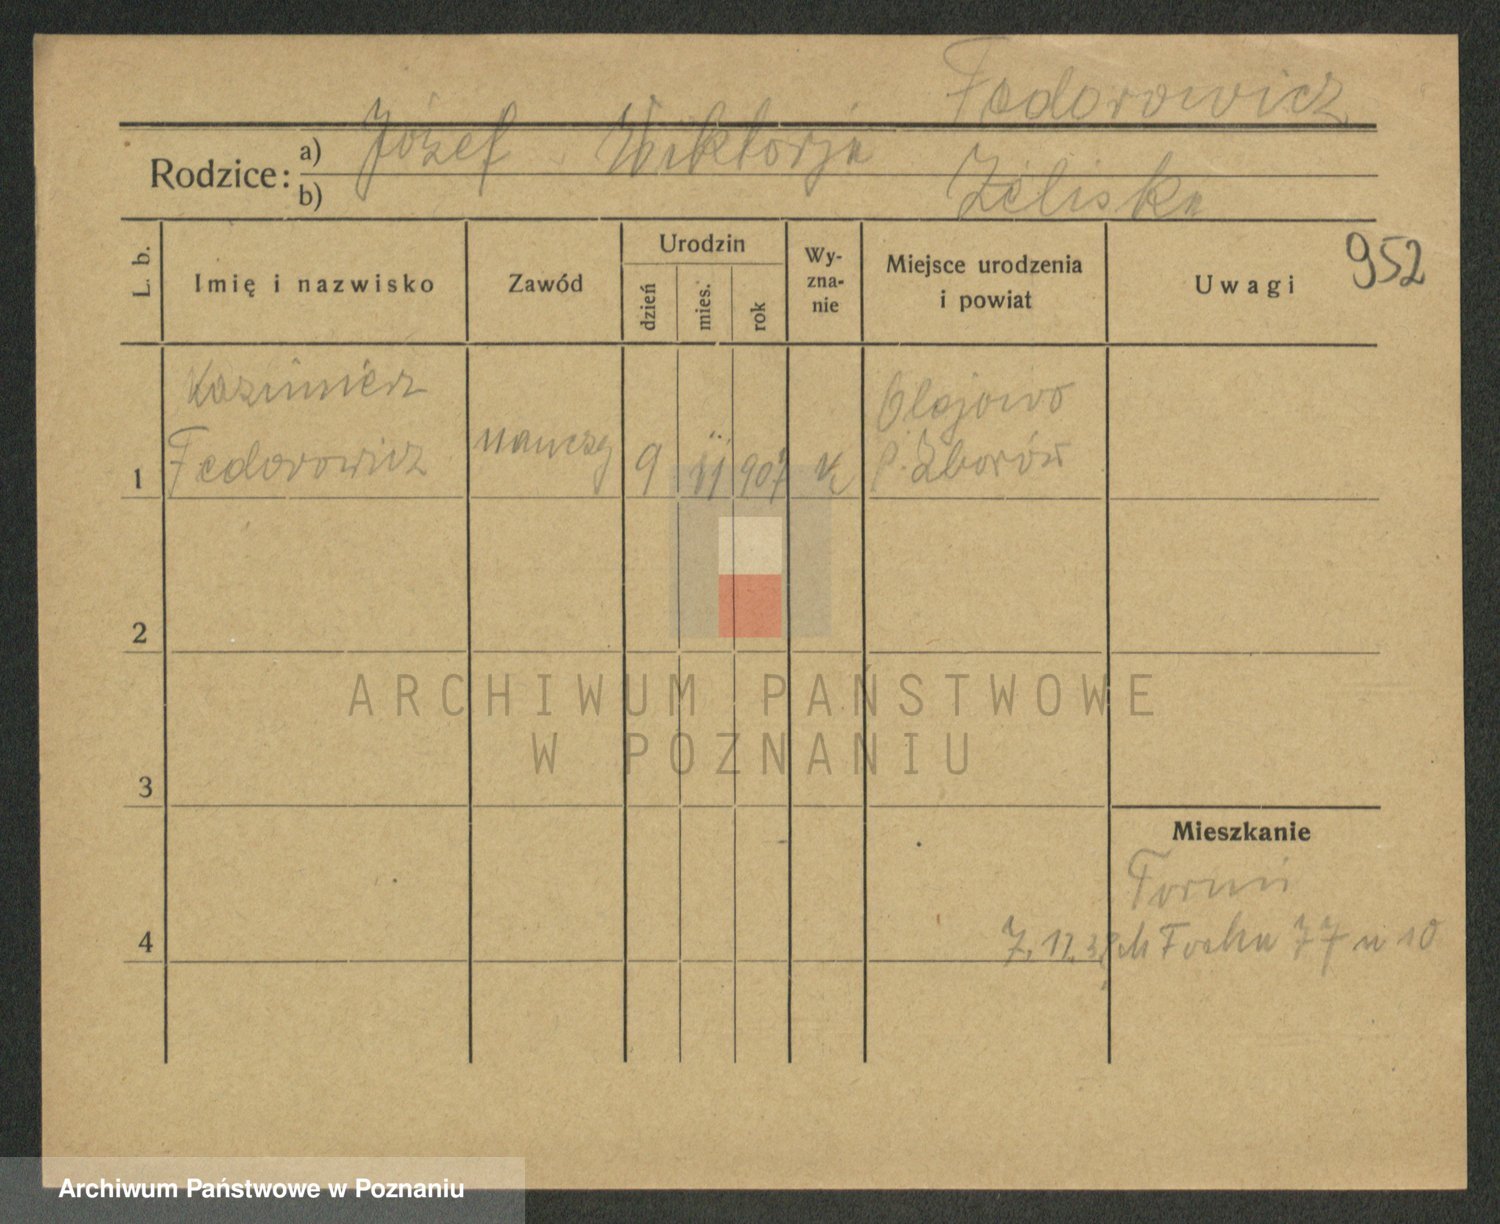 Fedorowicz
Rodzice: a) Józef Wiktorja
b) Żeliska
L. b. Imię i nazwisko Zawód Urodzin dzień mies. rok Wy-zna-nie Miejsce urodzenia i powiat Uwagi 952
Kazimierz Olejowo
1 Fedorowicz nauczy 9 11 907 p. Zborów
2
ARCHIWUM PAŃSTWOWE
W POZNANIU
3
Mieszkanie
Toruń
4 7. 11. 38 Focha 77 m 10
Archiwum Państwowe w Poznaniu